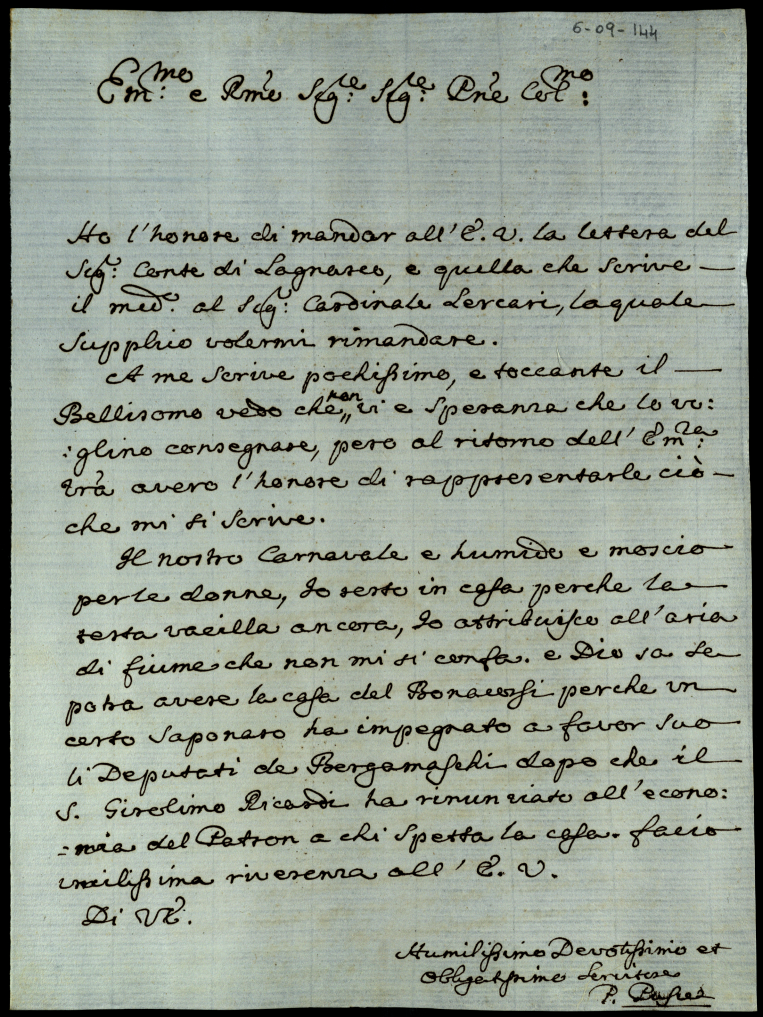 6-09-144
Em:mo e Rme Sig:re Sig:re Pne Col:mo
Ho l'honore di mandar all'E. V. la lettera del
Sig:r Conte di Lagnasco, e quella che scrive
il med.o al Sig:r Cardinale Lercari, la quale
supplico volermi rimandare.
A me scrive pochissimo, e toccante il
Bellisomo vedo che non vi e speranza che lo vo:
:glino consegnare, pero al ritorno dell'Em:za
Vra avero l'honore di rappresentarle ciò
che mi si scrive.
Il nostro Carnavale e humido e moscio
per le donne, Io resto in casa perche la
testa vacilla ancora, Io attribuisco all'aria
di fiume che non mi si confa. e Dio sa se
potra avere la casa del Bonacorsi perche un
certo Saponaro ha impegnato a favor suo
li Deputati de Bergamaschi dopo che il
S. Girolimo Ricardi ha rinunziato all'econo:
:mia del Patron a chi spetta la casa. facio
umilissima riverenza all'E. V.
Di VE.
Humilissimo Devotissimo et
Obligatissimo Servitore
P.